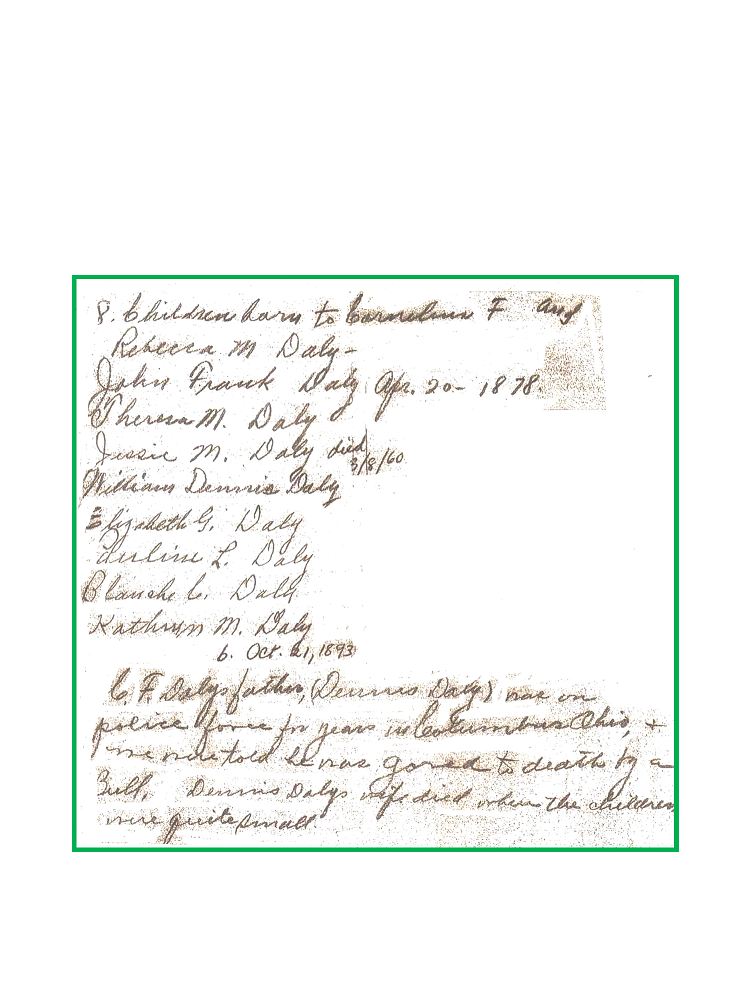 8. Children born to Cornelius F and
Rebecca M Daly-
John Frank Daly Apr. 20- 1878.
Theresa M. Daly
Jessie M. Daly died
3/8/60
William Dennis Daly
Elizabeth G. Daly
L. Daly
Blanche C. Daly
Kathryn M. Daly
b. Oct. 21, 1893
C. F. Dalys father, (Dennis Daly) was on
police force for years in Columbus Ohio, +
we were told he was gored to death by a
Bull. Dennis Dalys wife died when the children
were quite small.